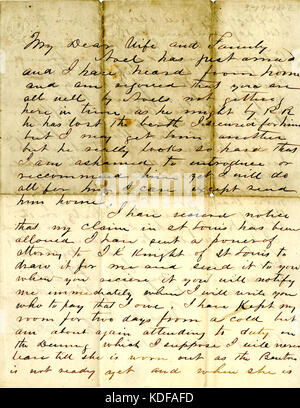 My Dear Wife and Family
Noel has just arrived
and I have heard from home
and am rejoiced that you are
all well by Noels not getting
here in time, as he might by R R
he has lost the berth I secured for him
but I may get him another
but he really looks so hard that
I am ashamed to introduce or
reccommend him yet I will do
all for him I can except send
him home.
I have received notice
that my claim in St Louis has been
allowed I have sent a power of
attorny to J K Knight of St Louis to
draw it for me and send it to you
when you recieve it you will notify
me immediately when I will write you
who to pay that I owe. I have kept my
room for two days from a cold but
am about again attending to duty on
the which I suppose I will never
leave till she is worn out as the Benton
is not ready yet and when she is
alamy stock photo